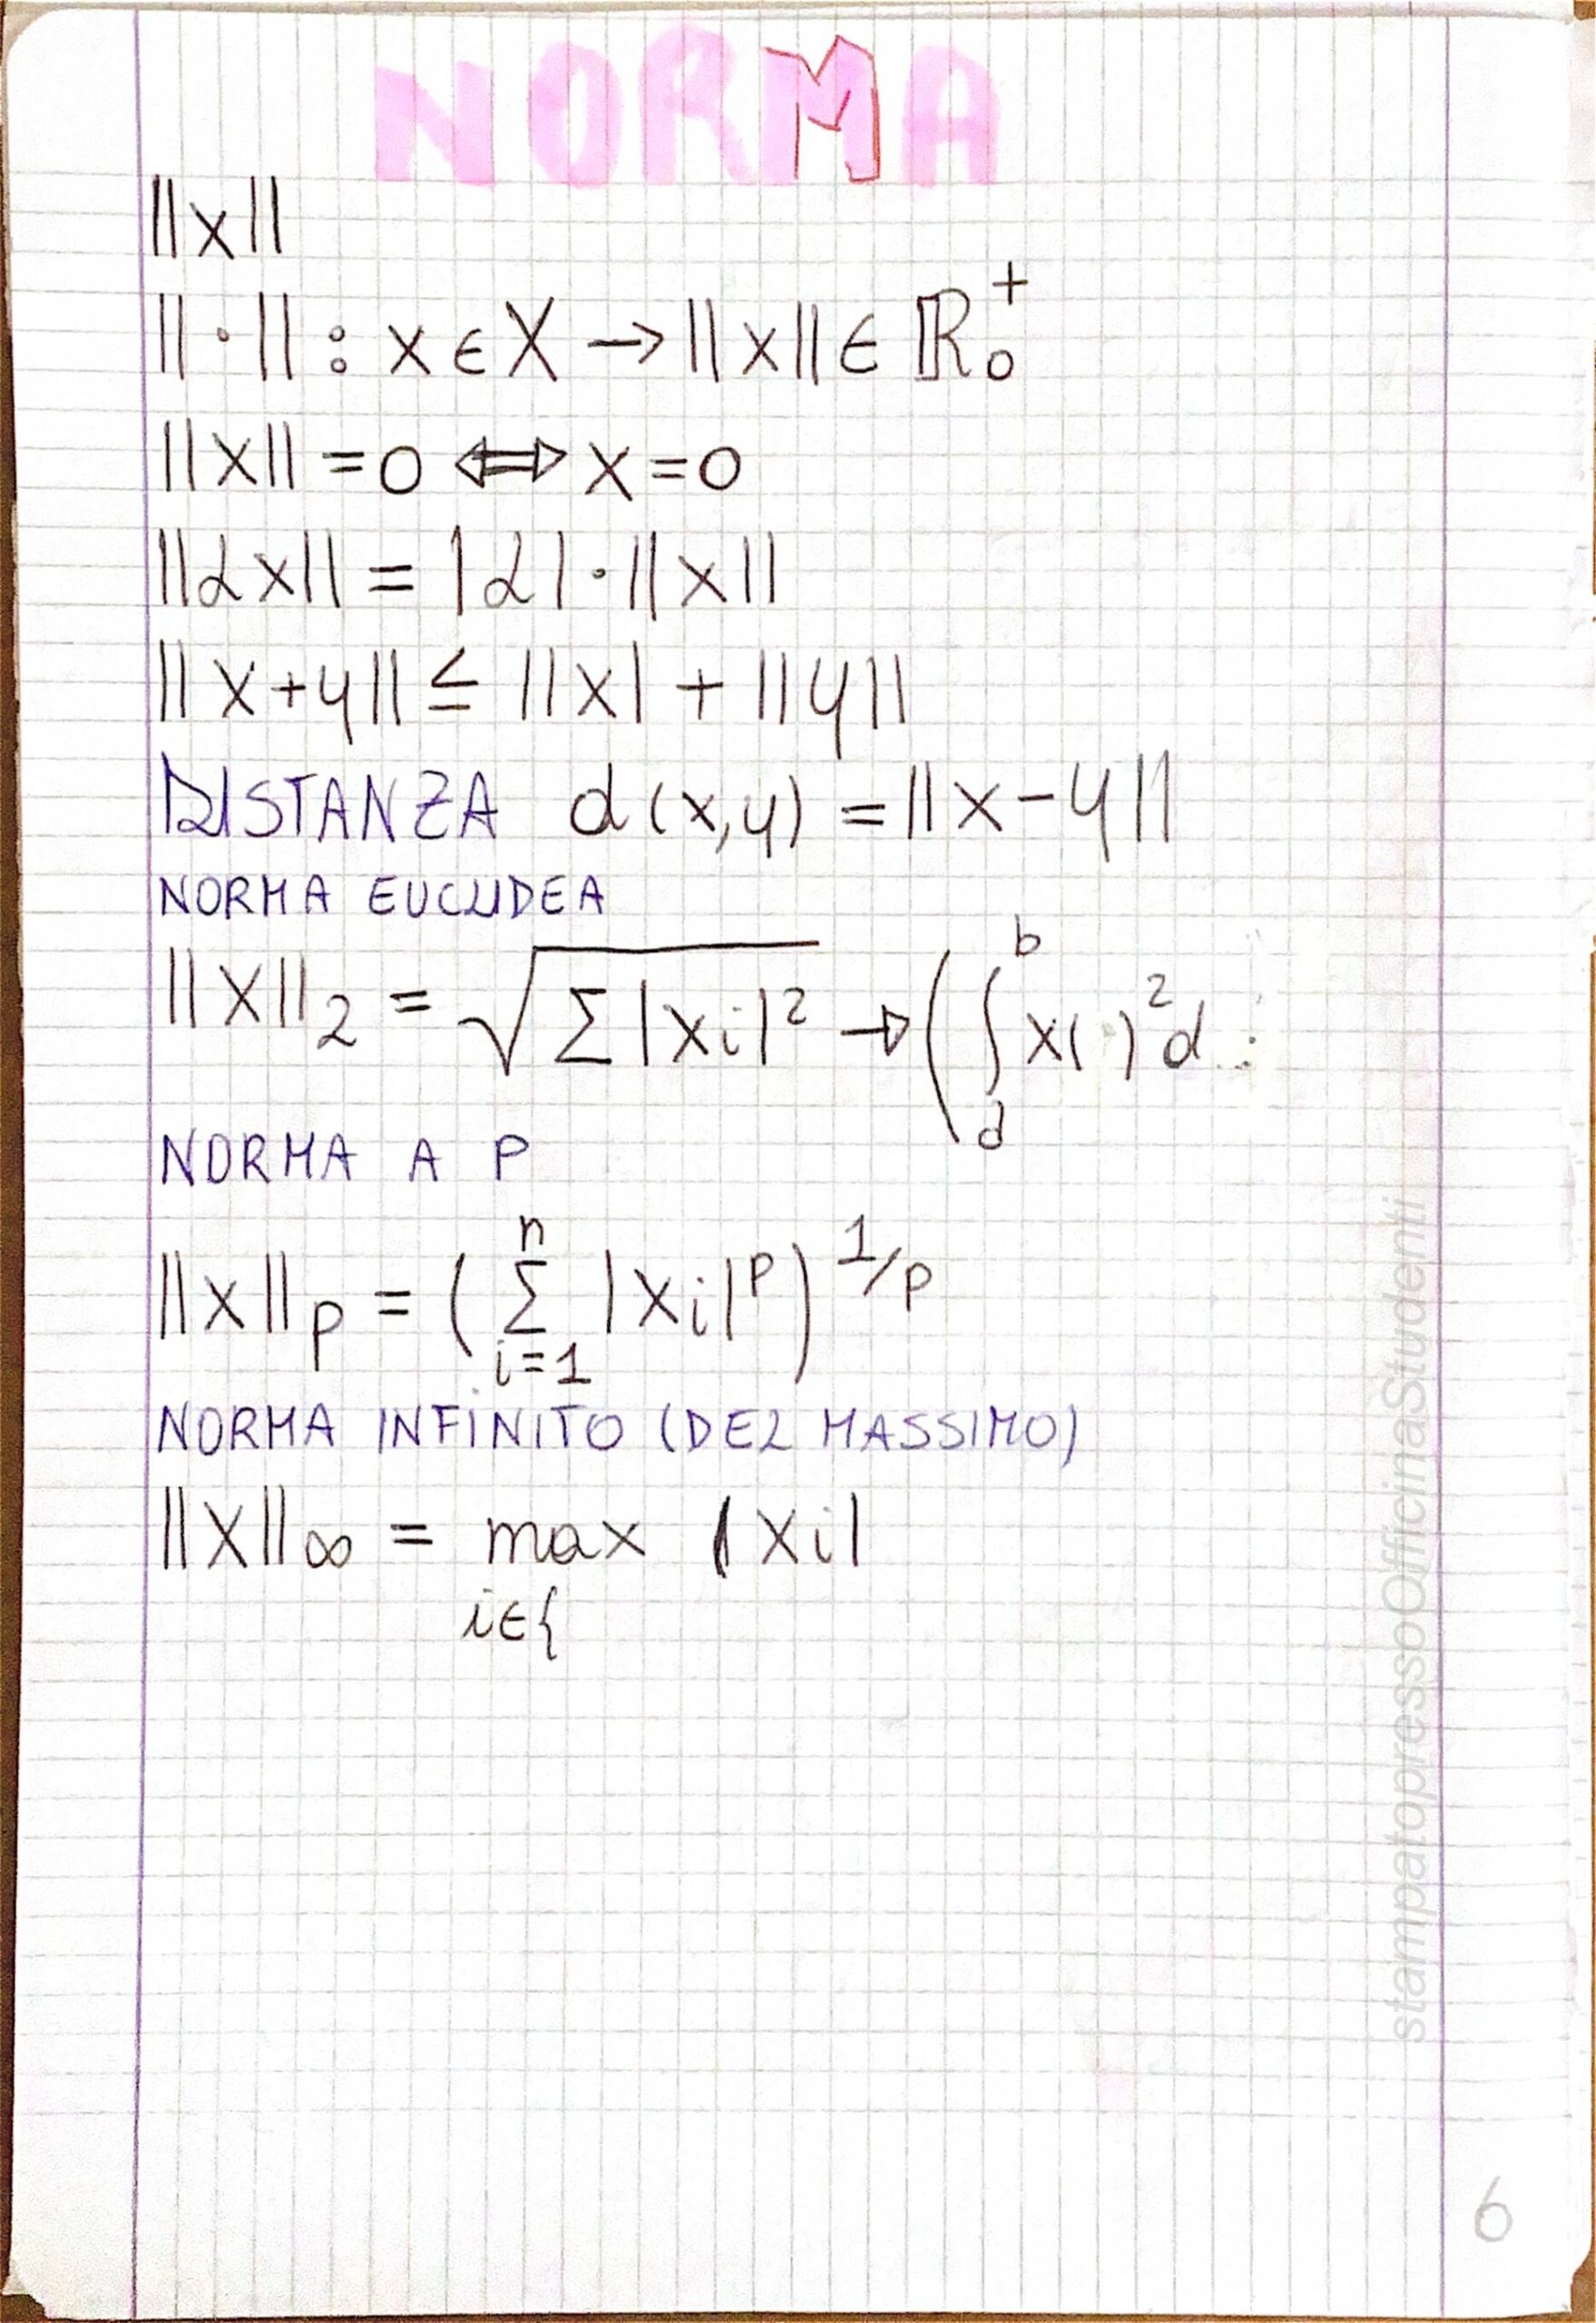 NORMA
||x||
||·|| : x ∈ X → ||x|| ∈ ℝ₀⁺
||x|| = 0 ⇔ x = 0
||αx|| = |α| · ||x||
||x+y|| ≤ ||x| + ||y||
DISTANZA d(x,y) = ||x-y||
NORMA EUCLIDEA
||x||₂ = √Σ|xi|² → (∫ₐᵇ x( )² d
NORMA A P
||x||ₚ = (Σⁿᵢ₌₁ |xi|ᵖ)^1/p
NORMA INFINITO (DEL MASSIMO)
||x||∞ = max |xi|
i∈{
stampatopressoOfficinaStudenti
6